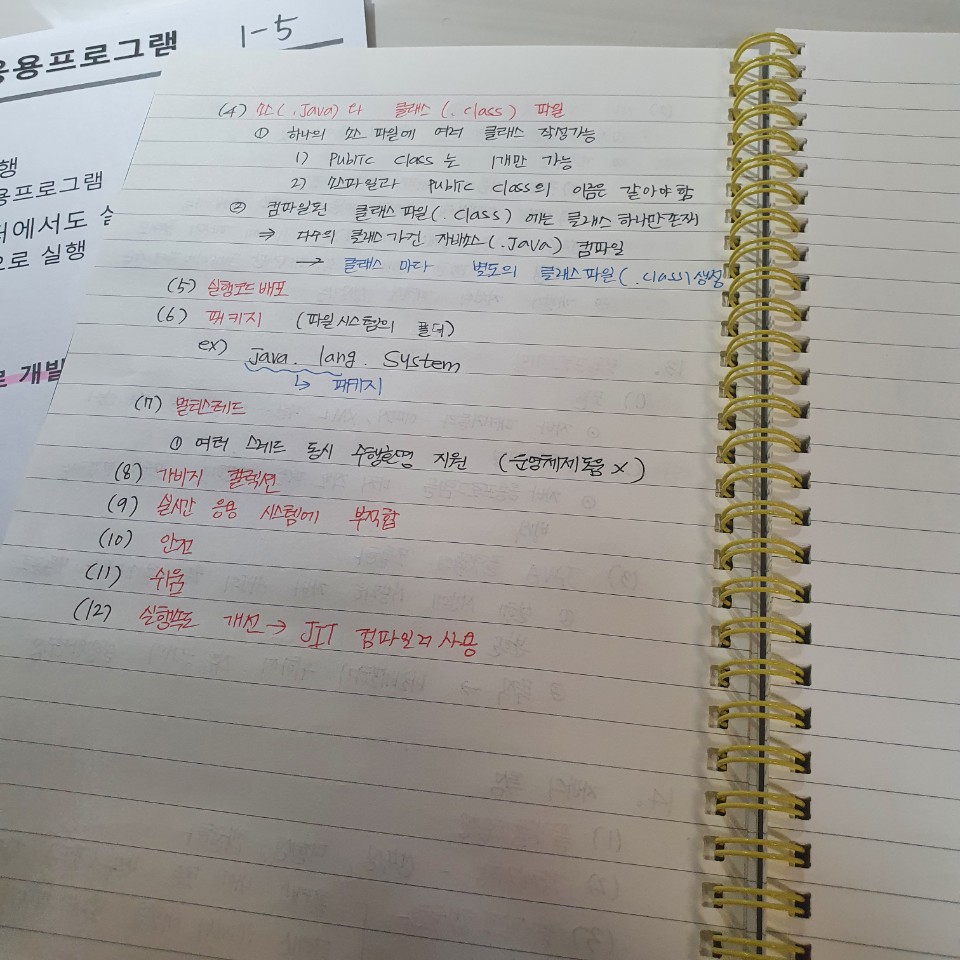 응용프로그램 1-5
행
용프로그램
에서도 실
으로 실행
개발
(4) 소스(.Java)와 클래스(.class) 파일
① 하나의 소스 파일에 여러 클래스 작성가능
1) Public class는 1개만 가능
2) 소스파일과 Public class의 이름은 같아야 함
② 컴파일된 클래스 파일(.class)에는 클래스 하나만 존재
⇒ 다수의 클래스 가진 자바소스(.Java) 컴파일
→ 클래스 마다 별도의 클래스파일(.class) 생성
(5) 실행코드 배포
(6) 패키지 (파일시스템의 폴더)
ex) java. lang. System
↳ 패키지
(7) 멀티스레드
① 여러 스레드 동시 수행환경 지원 (운영체제 도움 X)
(8) 가비지 컬렉션
(9) 실시간 응용 시스템에 부적합
(10) 안전
(11) 쉬움
(12) 실행속도 개선 → JIT 컴파일러 사용